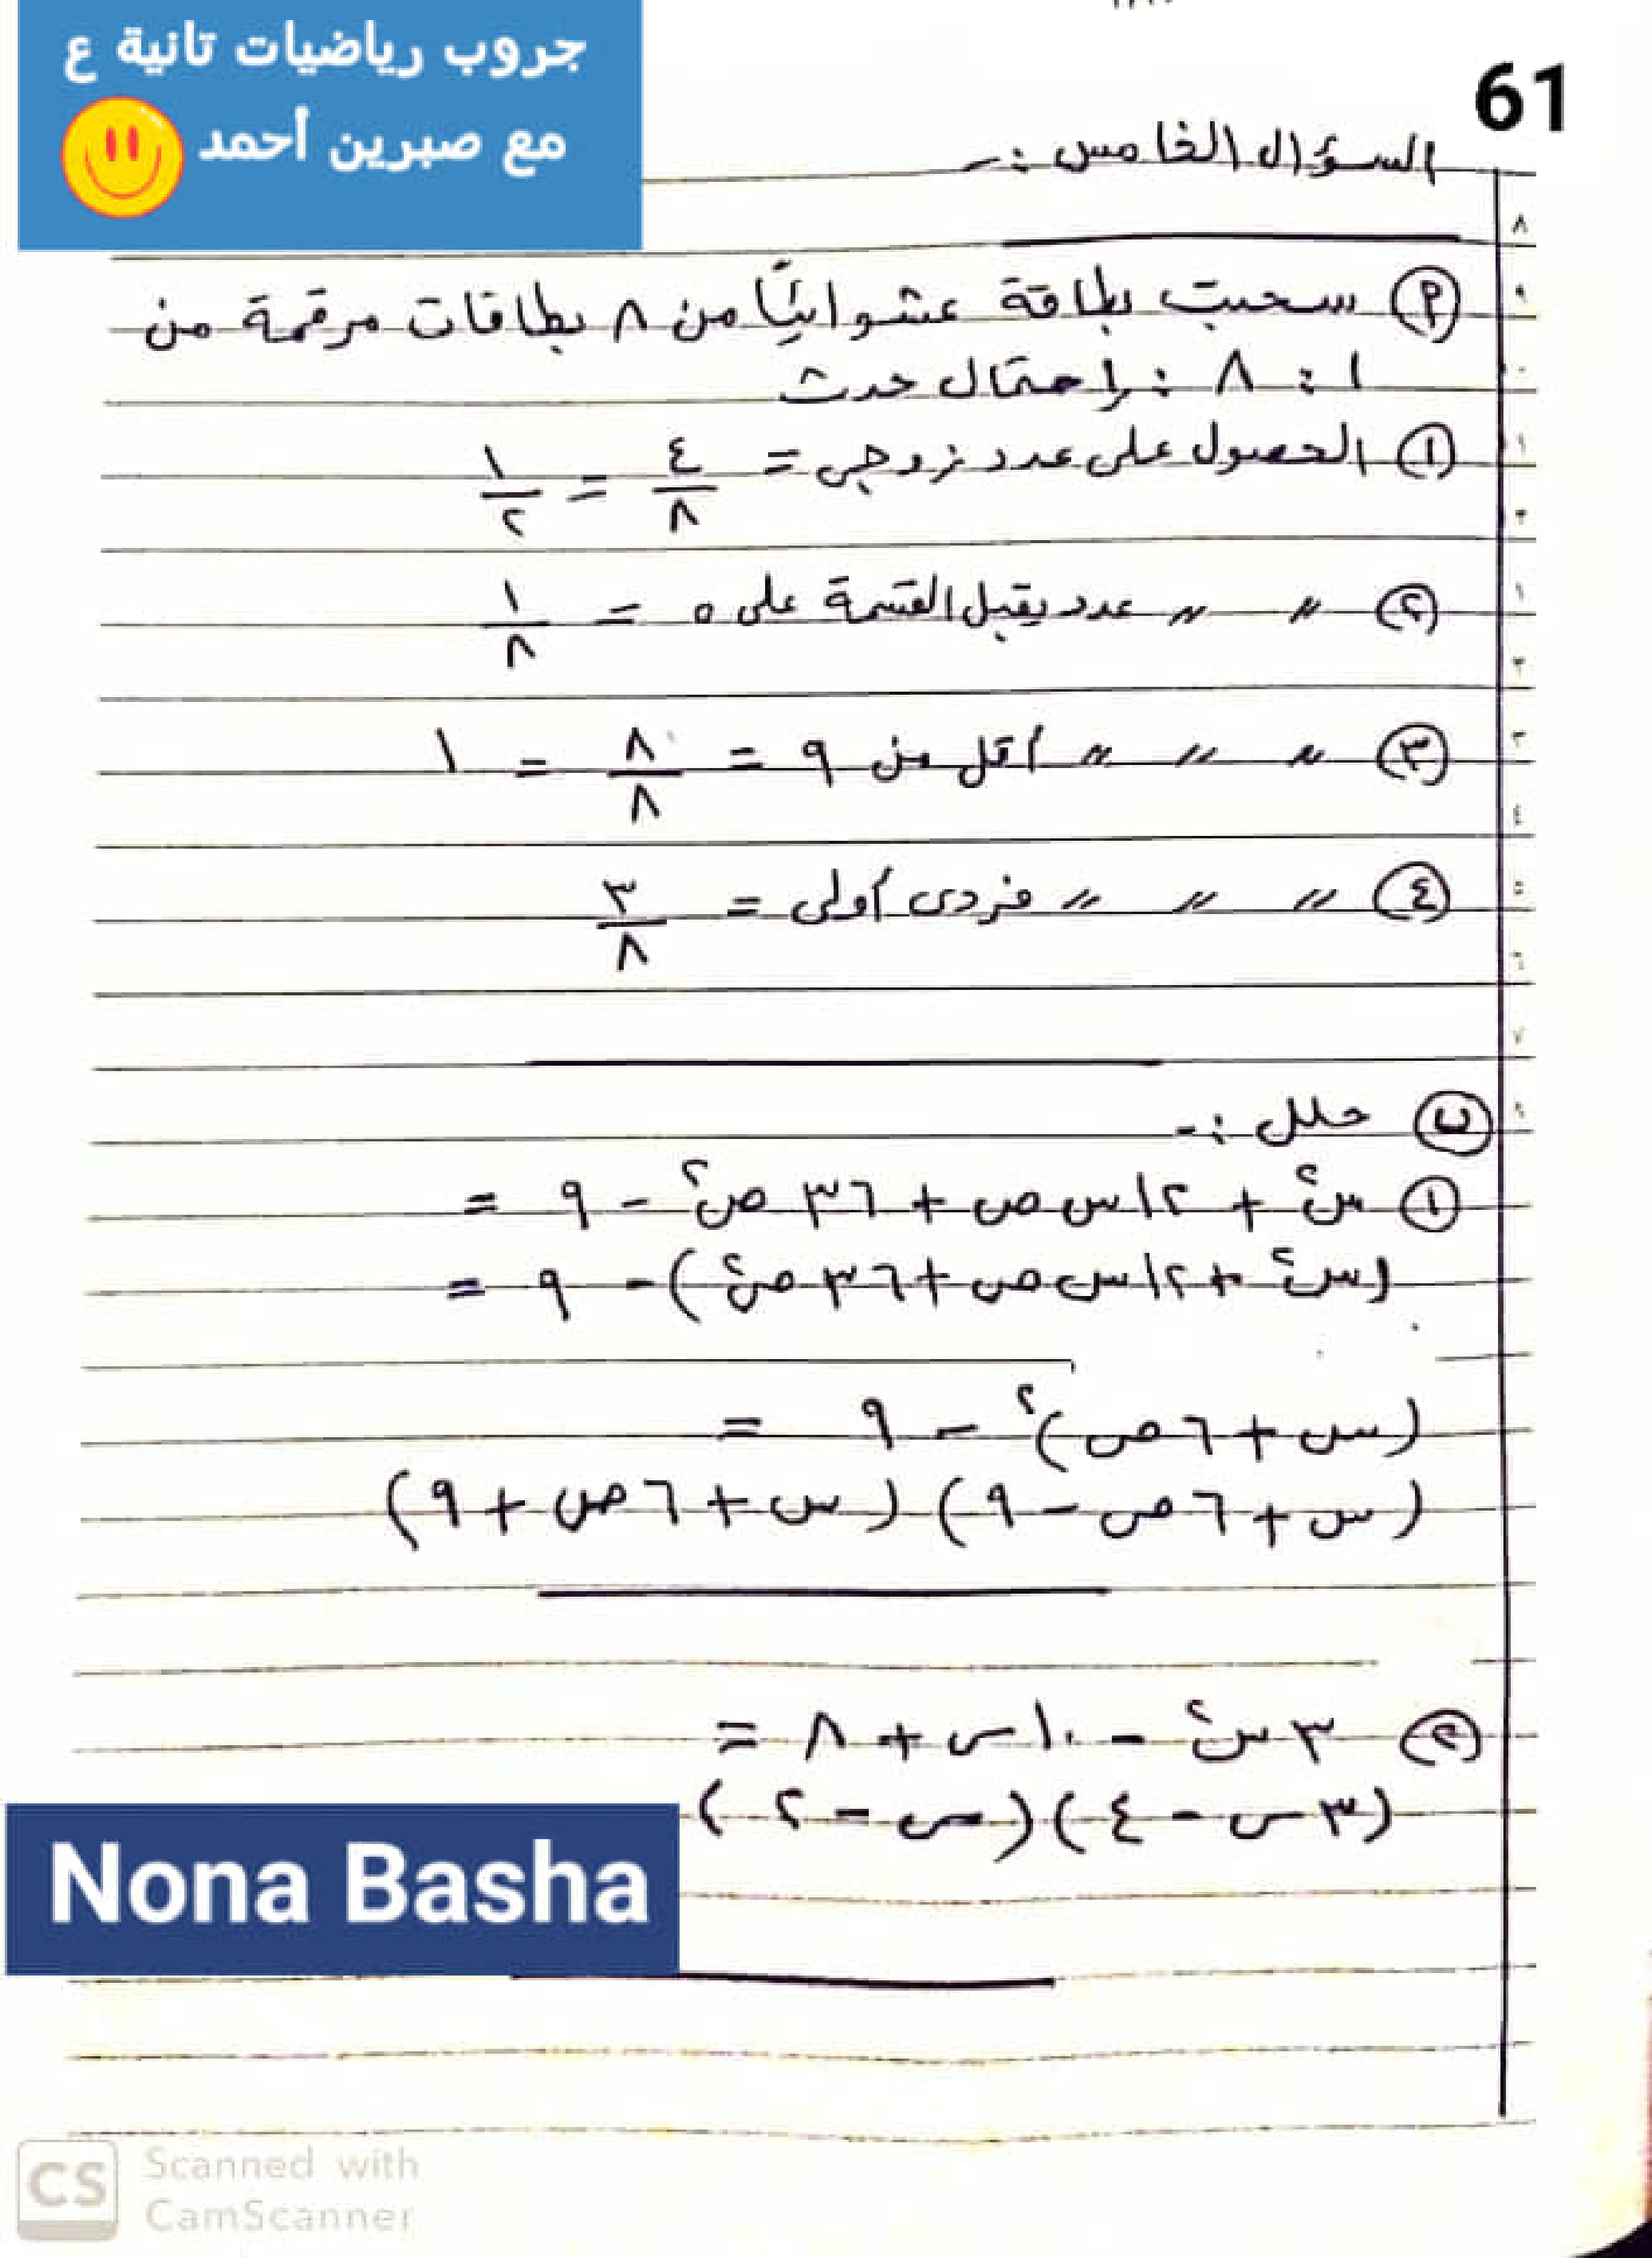 جروب رياضيات تانية ع
مع صبرين أحمد
61
السؤال الخامس :-
(أ) سحبت بطاقة عشوائيًا من ٨ بطاقات مرقمة من
١ : ٨ : احتمال حدث
(١) الحصول على عدد زوجى = ٤/٨ = ١/٢
(٢) 〃 〃 عدد يقبل القسمة على ٥ = ١/٨
(٣) 〃 〃 〃 أقل من ٩ = ٨/٨ = ١
(٤) 〃 〃 〃 فردى أولى = ٣/٨
(ب) حلل :-
(١) س٢ + ١٢ س ص + ٣٦ ص٢ - ٩ =
(س٢ + ١٢ س ص + ٣٦ ص٢) - ٩ =
(س + ٦ ص)٢ - ٩ =
(س + ٦ ص - ٩) (س + ٦ ص + ٩)
(٢) ٣ س٢ - ١٠ س + ٨ =
(٣ س - ٤) (س - ٢)
Nona Basha
CS
Scanned with
CamScanner